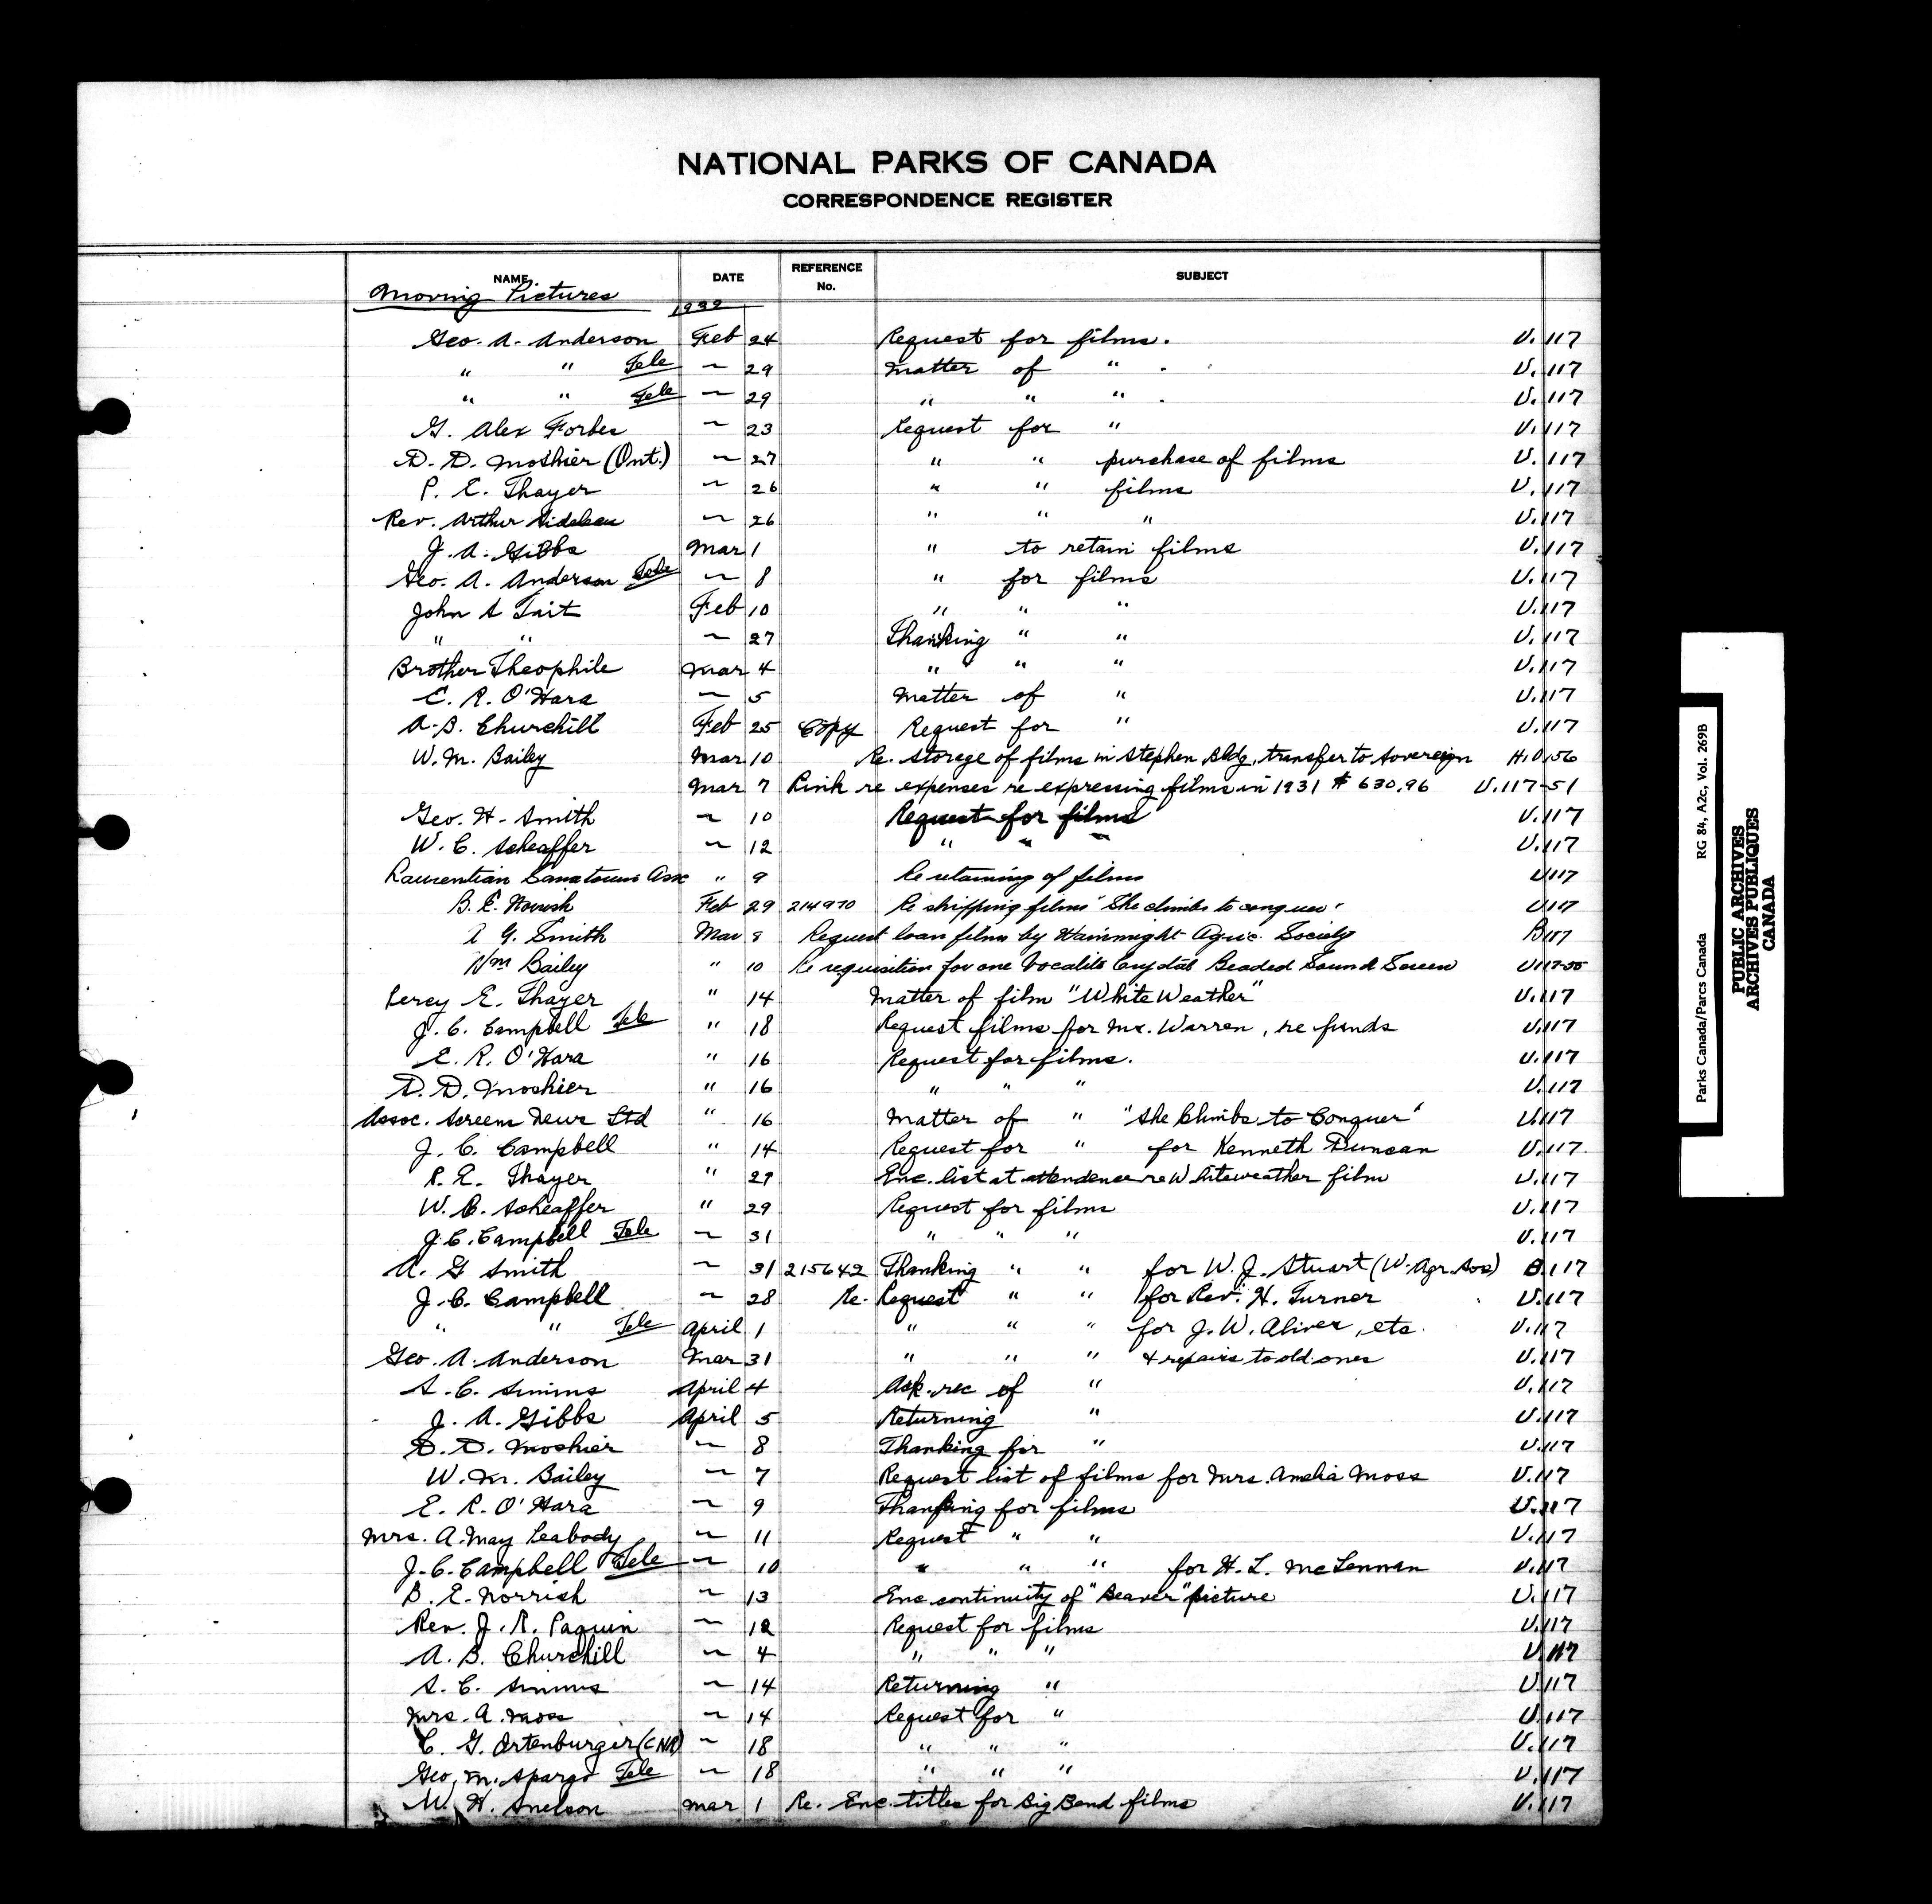 NATIONAL PARKS OF CANADA
CORRESPONDENCE REGISTER
NAME DATE REFERENCE No. SUBJECT
Moving Pictures
Geo. A. Anderson Feb 24 Request for films. U.117
" " Tele ~ 29 Matter of " . U.117
" " Tele ~ 29 " " " . U.117
G. Alex Forbes ~ 23 Request for " U.117
D. D. Moshier (Ont.) ~ 27 " " purchase of films U.117
P. E. Thayer ~ 26 " " films U.117
Rev. Arthur ~ 26 " " " U.117
J. A. Gibbs Mar 1 " to retain films U.117
Geo. A. Anderson Tele ~ 8 " for films U.117
John S Tait Feb 10 " " " U.117
" " ~ 27 Thanking " " U.117
Brother Theophile Mar 4 " " " U.117
E. R. O'Hara ~ 5 Matter of " U.117
A. B. Churchill Feb 25 Copy Request for " U.117
W. M. Bailey Mar 10 Re. Storege of films in Stephen Bldg, transfer to Sovereign H.O.156
Mar 7 Rink re expenses re expressing films in 1931 $ 630.96 U.117-51
Geo. H. Smith ~ 10 Request for films U.117
W. C. Scheaffer ~ 12 " " " U.117
Laurentian Sanatorium Assc " 9 Re retaining of films U117
B. E. Norrish Feb 29 214970 Re shipping films "She climbs to conquer" U117
A G. Smith Mar 8 Request loan films by Wainwright Agric. Society B117
Wm Bailey " 10 Re requisition for one Vocalite Crystal Beaded Sound Screen U117-55
Percy E. Thayer " 14 Matter of film "White Weather" U.117
J. C. Campbell Tele " 18 Request films for Mr. Warren, re funds U.117
E. R. O'Hara " 16 Request for films. U.117
D. D. Moshier " 16 " " " U.117
Assoc. Screen News Ltd " 16 Matter of " "She Climbs to Conquer" U.117
J. C. Campbell " 14 Request for " for Kenneth Duncan U.117.
P. E. Thayer " 29 Enc. list at attendence re Whiteweather film U.117
W. C. Scheaffer " 29 Request for films U.117
J. C. Campbell Tele ~ 31 " " " U.117
A. G Smith ~ 31 215642 Thanking " " for W. J. Stuart (W. Agr. Soc) B.117
J. C. Campbell ~ 28 Re. Request " " for Rev. H. Turner U.117
" " Tele April 1 " " " for J. W. Oliver, etc. U.117
Geo. A. Anderson Mar 31 " " " & repairs to old ones U.117
S. C. Simms April 4 Ack. rec of " U.117
J. A. Gibbs April 5 Returning " U.117
D. D. Moshier ~ 8 Thanking for " U.117
W. M. Bailey ~ 7 Request list of films for Mrs. Amelia Moss U.117
E. R. O'Hara ~ 9 Thanking for films U.117
Mrs. A. May Peabody ~ 11 Request " " U.117
J. C. Campbell Tele ~ 10 " " " for H. L. McLennan U.117
B. E. Norrish ~ 13 Enc continuity of "Beaver" picture U.117
Rev. J. R. Paquin ~ 12 Request for films U.117
A. B. Churchill ~ 4 " " " U.117
S. C. Simms ~ 14 Returning " U.117
Mrs. A. Moss ~ 14 Request for " U.117
C. G. Ortenburger (CNR) ~ 18 " " " U.117
Geo. M. Spargo Tele ~ 18 " " " U.117
W. H. Snelson Mar 1 Re. Enc. titles for Big Bend films U.117
Parks Canada/Parcs Canada RG 84, A2c, Vol. 269B
PUBLIC ARCHIVES
ARCHIVES PUBLIQUES
CANADA